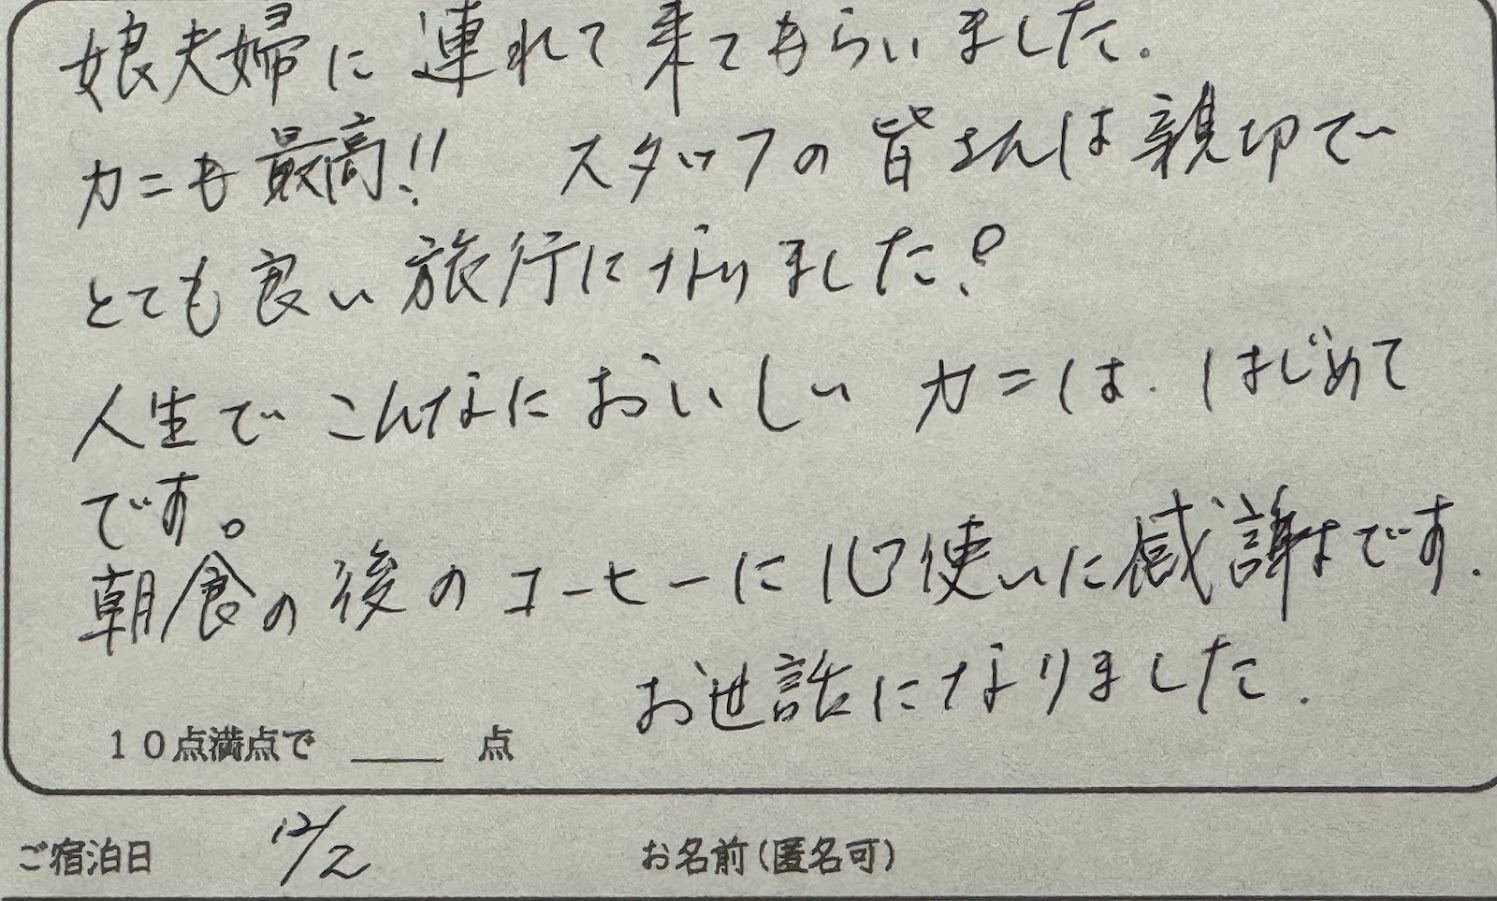 娘夫婦に連れて来てもらいました.
カニも最高!! スタッフの皆さんは親切で
とても良い旅行になりました!
人生でこんなにおいしいカニは.はじめて
です。
朝食の後のコーヒーに心使いに感謝です.
お世話になりました.
10点満点で ____ 点
ご宿泊日 12/2 お名前(匿名可)